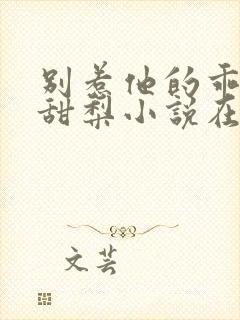 别惹他的乖
甜梨小说在
文芸